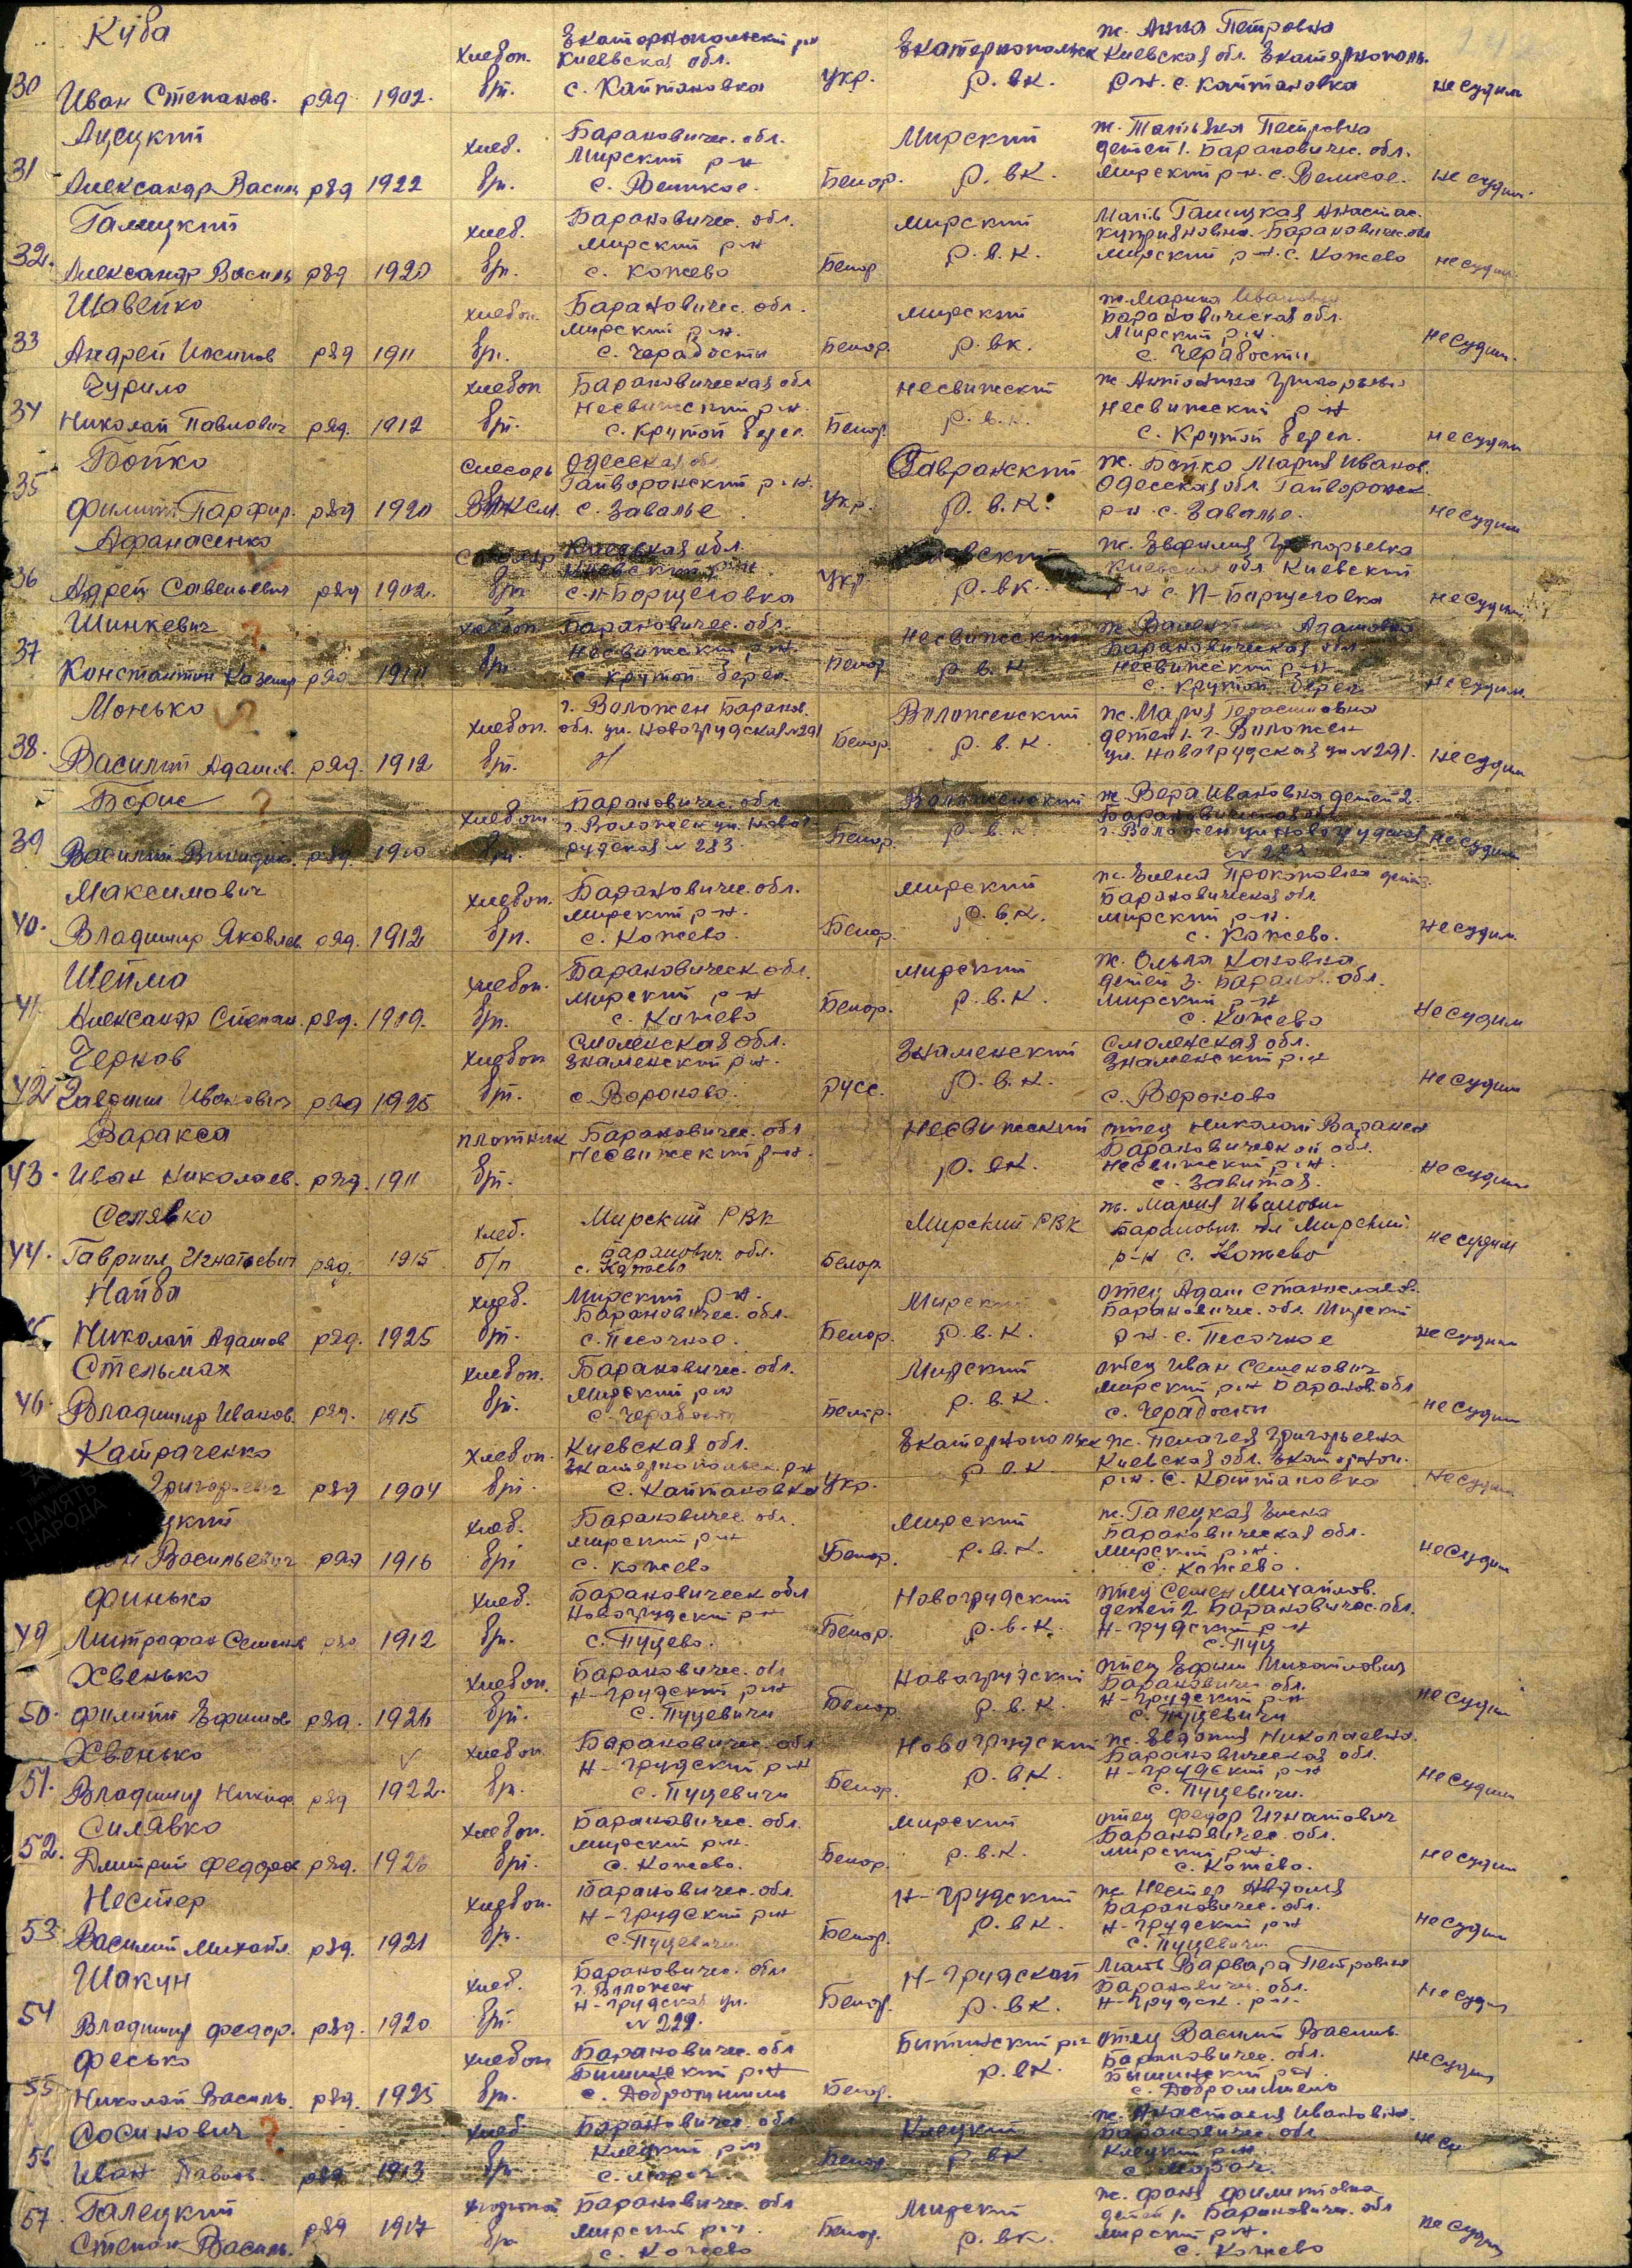 Куба
30 Иван Степанов. ряд. 1902. хлебоп. б/п. Екатеринопольский р-н Киевская обл. с. Кайтановка укр. Екатеринопольск Р.ВК. ж. Анна Петровна Киевская обл. Екатеринополь. р-н. с. Кайтановка не судим
31 Александр Василь ряд 1922 хлеб. б/п. Барановичес. обл. Мирский р-н с. Великое. Белор. Мирский Р.ВК. ж. Татьяна Петровна детей 1. Барановичес. обл. Мирский р-н. с. Великое. не судим.
Галецкий
32. Александр Василь ряд 1920 хлеб. б/п. Барановичес. обл. Мирский р-н с. Кожево Белор. Мирский Р.В.К. Мать Галицкая Анастас. Куприяновна. Барановичес. обл Мирский р-н. с. Кожево не судим.
Шавейко
33 Андрей Иосипов ряд 1911 хлебоп. б/п. Барановичес. обл. Мирский р-н. с. Черабости Белор. Мирский Р.ВК. ж. Марина Ивановна Барановическая обл. Мирский р-н. с. Черабости не судим.
Чурило
34 Николай Павлович ряд. 1912 хлебоп б/п. Барановическая обл Несвижский р-н. с. Крутой берег. Белор. Несвижский Р.В.К. ж. Антонина Григорьевн Несвижский р-н с. Крутой берег. не судим
Бойко
35 Филипп Парфир. ряд 1920 слесарь ВЛКСМ. Одесская обл Гайворонский р-н. с. Завалье укр. Савранский Р.В.К. ж. Бойко Мария Иванов. Одесская обл. Гайворонск. р-н с. Завалье. не судим
Афанасенко
36 Адрей Савельевич ряд 1902. б/п Киевская обл. Киевский р-н с. П-Борщеговка укр. Киевский Р.ВК. ж. Евфилия Григорьевна Киевская обл Киевский р-н с. П-Барщеговка не судим.
Шинкевич
37 Константин Казимир ряд. хлебоп б/п Барановичес. обл. Несвижский р-н. с Крутой берег. Белор Несвижский Р.В.К. ж. Адамовна Барановическая обл. Несвижский р-н. с. Крутой берег не судим.
Монько
38. Василий Адамов. ряд. 1912 хлебоп. б/п. г. Воложен Баранов. обл. ул. Новогрудская №291 Белор. Воложенский Р.В.К. ж. Мария Герасимовна детей 1. г. Воложен ул. Новогрудская ул №291. не судим
Борис
39 Василий ряд. 1910 хлебоп. б/п. Барановичес. обл г. Воложен ул. Новогрудская № 283. Белор. Воложенский Р.В.К. ж. Вера Ивановна детей 2. Барановическая обл г. Воложен ул Новогрудская № 283 не судим
Максимович
40. Владимир Яковлев ряд. 1912 хлебоп. б/п. Барановичес. обл. Мирский р-н. с. Кожево. Белор. Мирский Р.В.К. ж. Елена Прокоповна детей 3. Барановическая обл. Мирский р-н. с. Кожево. не судим
Шейма
41 Александр Степан. ряд. 1909. хлебоп. б/п. Барановическ обл. Мирский р-н с. Кожево Белор. Мирский Р.В.К. ж. Ольга детей 3. Баранов. обл. Мирский р-н с. Кожево не судим
Чернов
42 Иванович ряд 1925 хлебоп б/п. Смоленская обл. Знаменский р-н. с. Вороново. русс. Знаменский Р.В.К. Смоленская обл. Знаменский р-н с. Вороново не судим
Варакса
43. Иван Николаев. ряд. 1911 плотник б/п. Барановичес. обл Несвижский р-н. Несвижский Р.ВК. отец Николай Варакса Барановической обл. Несвижский р-н. с. Завитая. не судим
Селявко
44. Гавриил Игнатьевич ряд. 1915 хлеб. б/п Мирский РВК Баранович. обл. с. Кожево Белор Мирский РВК ж. Мария Ивановн Баранович. обл Мирский. р-н с. Кожево не судим
Найба
45. Николай Адамов ряд. 1925 хлеб. б/п. Мирский р-н. Барановичес. обл. с. Песочное. Белор. Мирский Р.В.К. отец Адам Станиславов. Барановичес. обл Мирский р-н. с. Песочное не судим
Стельмах
46. Владимир Иванов. ряд. 1915 хлебоп. б/п. Барановичес. обл. Мирский р-н с. Черабости Белор. Мирский Р.В.К. отец Иван Семенович Мирский р-н Баранов. обл с. Черабости не судим
Катраченко
Григорьевич ряд 1904 хлебоп. б/п. Киевская обл. Екатеринопольск. р-н с. Кайтановка укр. Екатеринопольск Р.В.К ж. Пелагея Григорьевна Киевская обл. Екатериноп. р-н. с. Кайтановка не судим
цкий
Васильевич ряд 1916 хлеб. б/п Барановичес. обл. Мирский р-н с. Кожево Белор. Мирский Р.В.К. ж. Галецкая Елена Барановическая обл. Мирский р-н. с. Кожево. не судим
Финько
49 Митрофан Семенов ряд 1912 хлеб. б/п. Барановическ обл Новогрудский р-н с. Пуцево. Белор. Новогрудский Р.В.К. отец Семен Михайлов. детей 2 Барановичес. обл. Н-Грудский р-н с. Пуц не судим
Хвенько
50. Филипп Ефимов ряд. 1926 хлебоп. б/п. Барановичес. обл Н-Грудский р-н с. Пуцевичи Белор Новогрудский Р.В.К. отец Ефим Михайлович Барановичес. обл. Н-Грудский р-н с. Пуцевичи не судим
Хвенько
51. Владимир Никиф. ряд 1922. хлебоп. б/п. Барановичес. обл Н-Грудский р-н с. Пуцевичи Белор. Новогрудский Р.В.К. ж. Евдокия Николаевна. Барановическая обл. Н-Грудский р-н с. Пуцевичи. не судим
Силявко
52. Дмитрий Федоров ряд. 1926 хлебоп. б/п. Барановичес. обл. Мирский р-н. с. Кожево. Белор. Мирский Р.В.К. отец Федор Игнатович Барановичес. обл. Мирский р-н. с. Кожево. не судим
Нестер
53 Василий Михайл. ряд. 1921 хлебоп. б/п. Барановичес. обл. Н-Грудский р-н с. Пуцевичи Белор. Н-Грудский Р.В.К. ж. Нестер Барановичес. обл. Н-Грудский р-н с. Пуцевичи не судим
Шакун
54 Владимир Федор. ряд. 1920 хлеб. б/п. Барановичес. обл г. Воложен Н-Грудская ул. № 229. Белор. Н-Грудский Р.ВК. Мать Варвара Петровна Барановичес. обл. Н-Грудск. р-н. не судим
Фесько
55 Николай Василь. ряд. 1925 хлебоп б/п. Барановичес. обл р-н с. Добромышль Белор. р-н Р.ВК. отец Василий Василь. Барановичес. обл. р-н. с. Доброшмыль не судим
Сосинович
56 Иван Павлов. ряд. 1913 хлеб б/п Барановичес. обл Клецкий р-н с. Морочь Белор Клецкий Р.ВК ж. Анастасия Ивановна. Барановичес. обл Клецкий р-н. с. Морочь. не су
57. Галецкий Степан Василь. ряд 1917 б/п Барановичес. обл Мирский р-н. с. Кожево Белор. Мирский Р.ВК. ж. Фаня Филиповна детей 1. Барановичес. обл Мирский р-н. с. Кожево не судим
ПАМЯТЬ НАРОДА